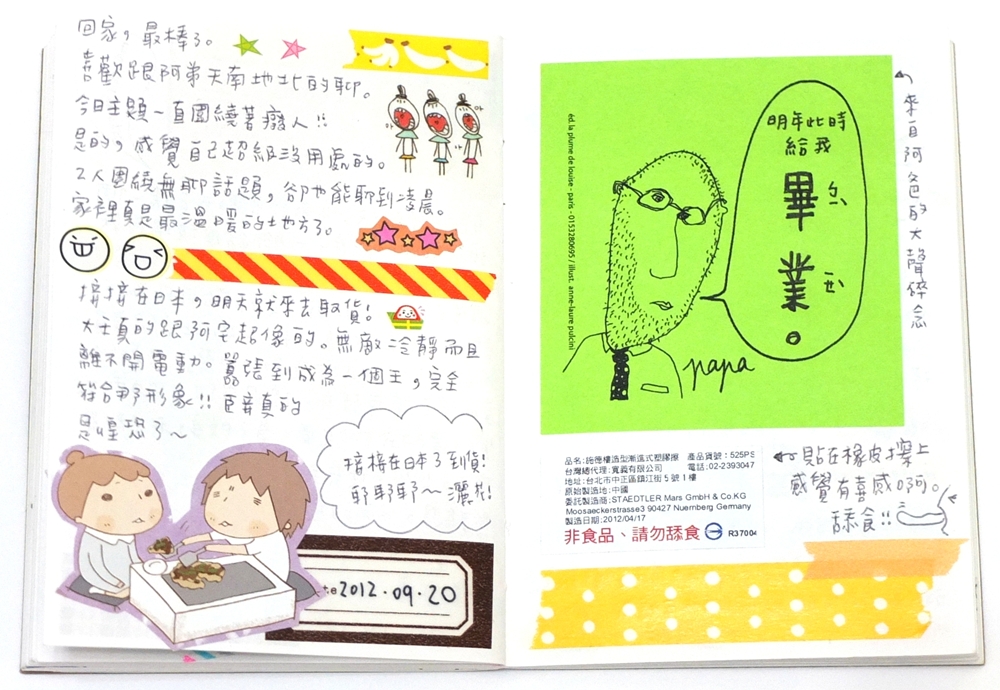 回家，最棒了。
喜歡跟阿弟天南地北的聊。
今日主題一直圍繞著廢人!!
是的，感覺自己超級沒用處的。
2人圍繞無聊話題，卻也能聊到凌晨。
家裡真是最溫暖的地方了。
接接在日本，明天就來去取貨!
大王真的跟阿宅超像的。無敵冷靜而且
離不開電動。囂張到成為一個王，完全
符合那形象!! 臣妾真的
是惶恐了～
接接在日本了到貨!
耶耶耶～灑花!
2012.09.20
éd. la plume de louise - paris - 0153280695 / illust. anne-laure pulcini
明年此時
給我
畢業。
papa
來自阿爸的大聲碎念
品名:施德樓造型漸進式塑膠擦 產品貨號:525PS
台灣總代理:寬義有限公司 電話:02-2393047
地址:台北市中正區鎮江街5號1樓
原始製造地:中國
委託製造商:STAEDTLER Mars GmbH & Co.KG
Moosaeckerstrasse3 90427 Nuernberg Germany
製造日期:2012/04/17
非食品、請勿舔食 R37004
貼在橡皮擦上
感覺有喜感啊。
舔食!!